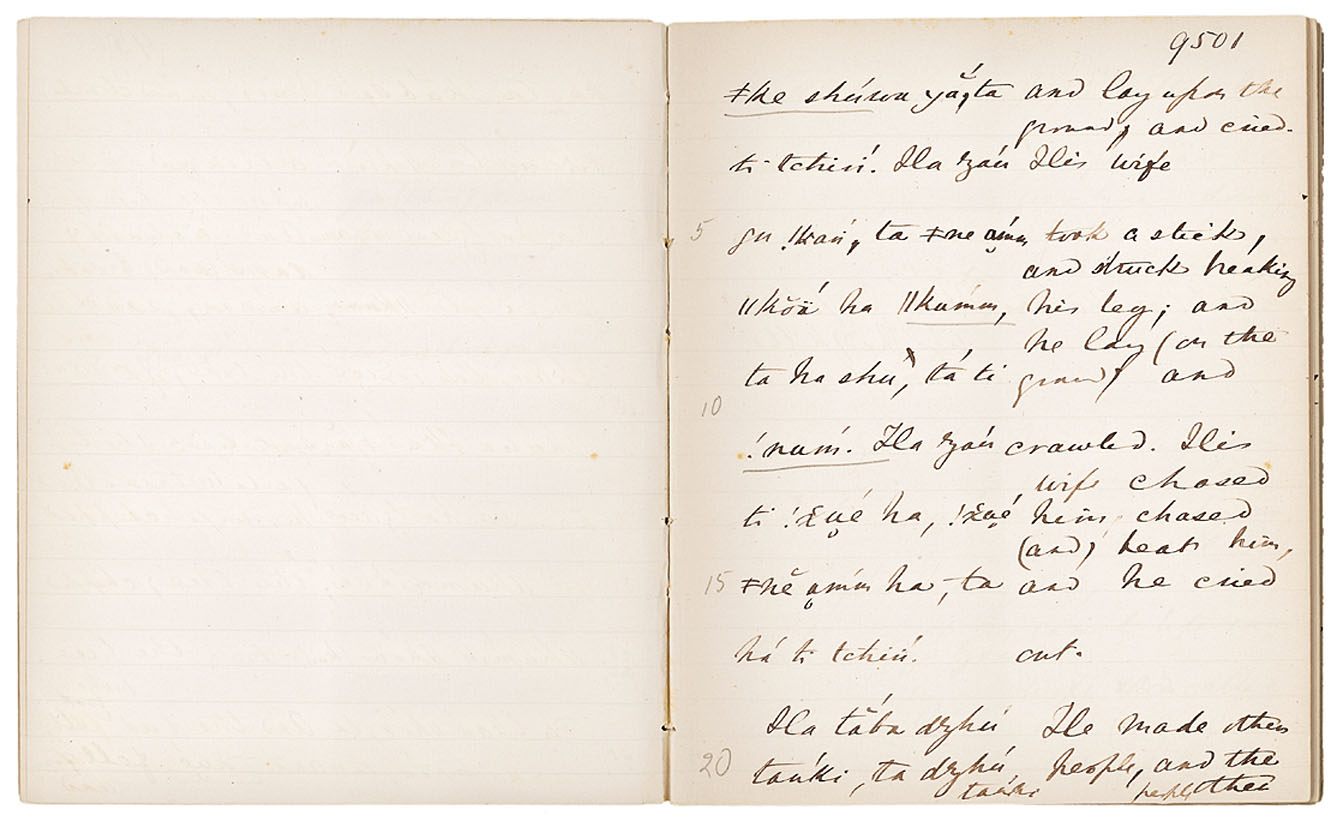 9501
ǂke shúwa yắ, ta and lay upon the
ground, and cried.
ti tchiń. Ha zaú His wife
5 gu !kań, ta ǂne a̤mm took a stick,
and struck breaking
ǁkõä́ ha ǁkúmm, his leg; and
he lay (on the
ta ha shú, tá ti ground) and
10
!nuḿ. Ha zaú crawled. His
wife chased
ti !x̆ṳé ha, !x̆ṳé him, chased
(and) beat him,
15 ǂnĕ a̤ḿm ha, ta and he cried
há ti tchiń. out.
Ha tắba dzhú He made other
20 taúki, ta dzhú people, and the
taúki people other